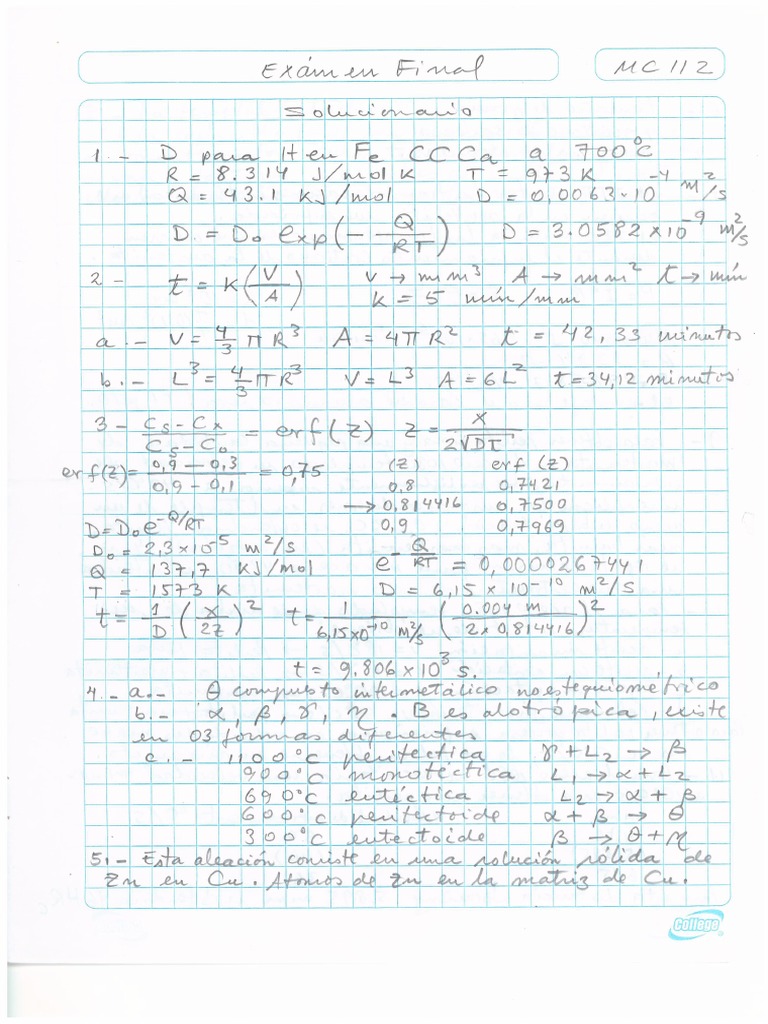 Exámen Final
MC 112
Solucionario
1.- D para H en Fe CCCa a 700°C
R = 8.314 J/mol K T = 973 K
Q = 43.1 KJ/mol D = 0,0063·10⁻⁴ m²/s
D = D₀ exp(- Q/RT) D = 3.0582 × 10⁻⁹ m²/s
2- t = K(V/A) V → mm³ A → mm² t → mín
k = 5 mín/mm
a.- V = 4/3 π R³ A = 4π R² t = 42,33 minutos
b.- L³ = 4/3 π R³ V = L³ A = 6L² t = 34,12 minutos
3- (Cs - Cx)/(Cs - C₀) = erf(z) z = x/(2√Dt)
erf(z) = (0,9 - 0,3)/(0,9 - 0,1) = 0,75 (z) erf (z)
0,8 0,7421
→ 0,814416 0,7500
0,9 0,7969
D = D₀ e^(-Q/RT)
D₀ = 2,3×10⁻⁵ m²/s e^(-Q/RT) = 0,0000267441
Q = 137,7 KJ/mol
T = 1573 K D = 6,15 × 10⁻¹⁰ m²/s
t = 1/D (x/2z)² t = 1/(6,15×10⁻¹⁰ m²/s) (0.004 m/(2×0,814416))²
t = 9.806 × 10³ s.
4.- a.- θ compuesto intermetálico no estequiométrico
b.- α, β, γ, η. B es alotrópica, existe
en 03 formas diferentes
c.- 1100°C peritectica γ + L₂ → β
900°C monotéctica L₁ → α + L₂
690°C eutéctica L₂ → α + β
600°C peritectoide α + β → θ
300°C eutectoide β → θ + η
5.- Esta aleación consiste en una solución sólida de
Zn en Cu. Atomos de Zn en la matriz de Cu.
College